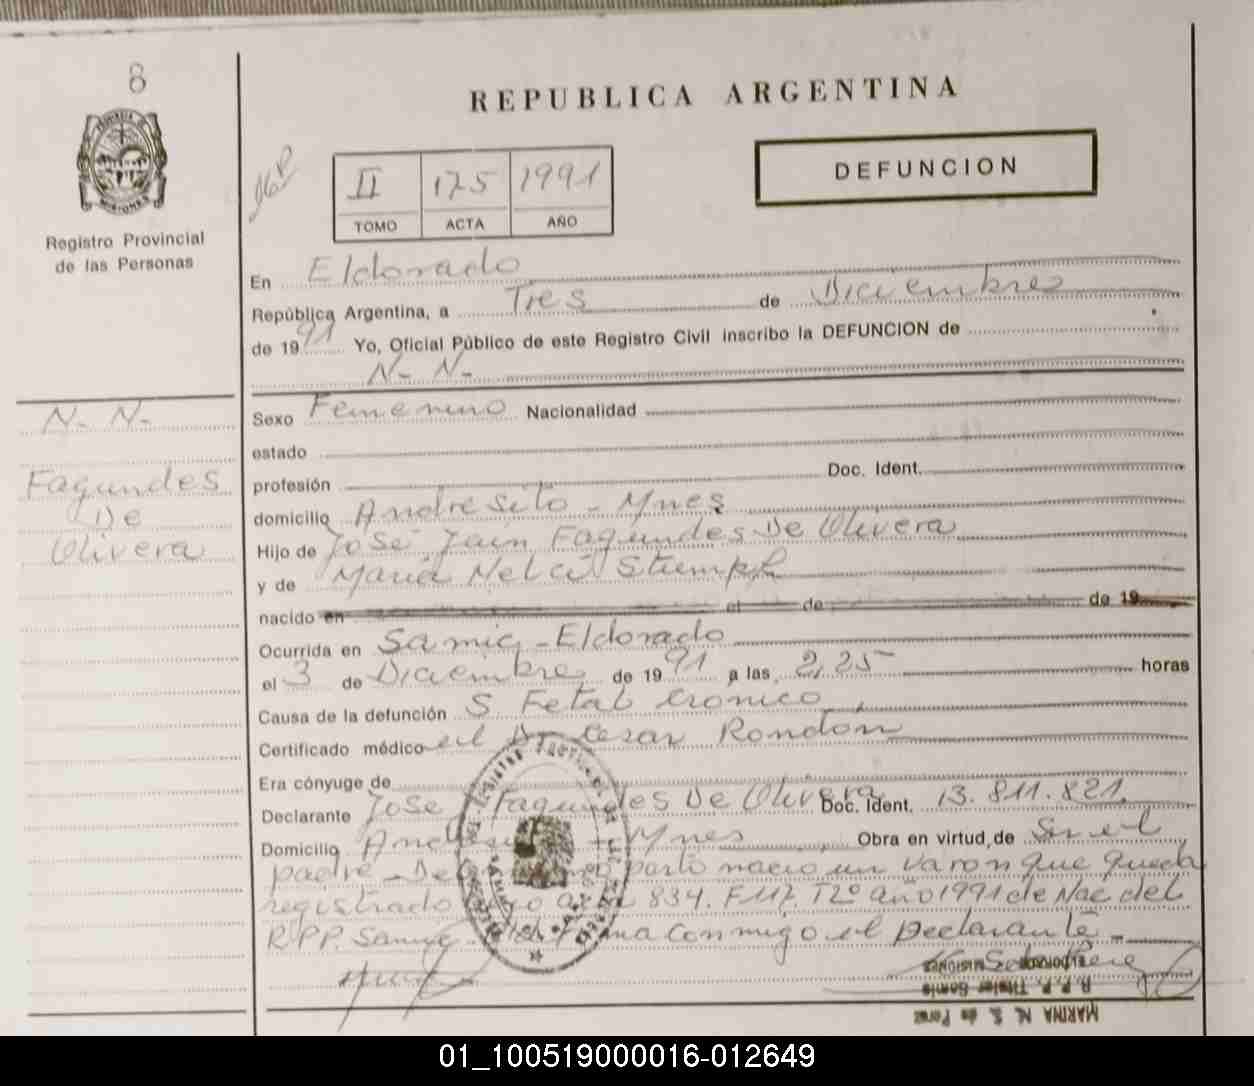 8
REPUBLICA ARGENTINA
DEFUNCION
II 175 1991
TOMO ACTA AÑO
Registro Provincial
de las Personas
En Eldorado
República Argentina, a Tres de Diciembre
de 1991 Yo, Oficial Público de este Registro Civil inscribo la DEFUNCION de
N- N-
N- N-
Fagundes
De
Olivera
Sexo Femenino Nacionalidad
estado
profesión Doc. Ident.
domicilio Andresito - Mnes
Hijo de José Jain Fagundes De Olivera
y de María Nelci Stumph
nacido en el de de 19
Ocurrida en Samic - Eldorado
el 3 de Diciembre de 1991 a las 2,25 horas
Causa de la defunción S Fetal cronico
Certificado médico el Dr Cesar Rondon
Era cónyuge de
Declarante Jose Fagundes De Olivera Doc. Ident. 13.811.821
Domicilio Mnes Obra en virtud de Ser el
padre - parto nacio un varon que queda
registrado 834. F117 T2º año 1991 de Nac del
R.P.P. Samic conmigo el Declarante -
MARINA N. S. de Perez
R. P. P. Titular Samic
01_100519000016-012649